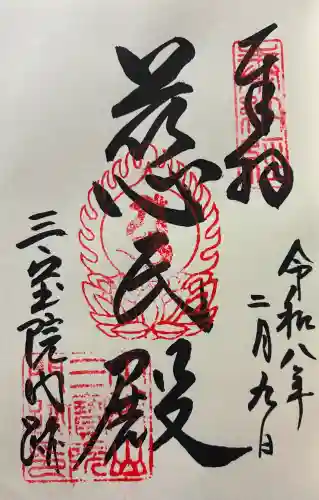 奉拝
令和八年
二月九日
慈氏殿
三宝院門跡